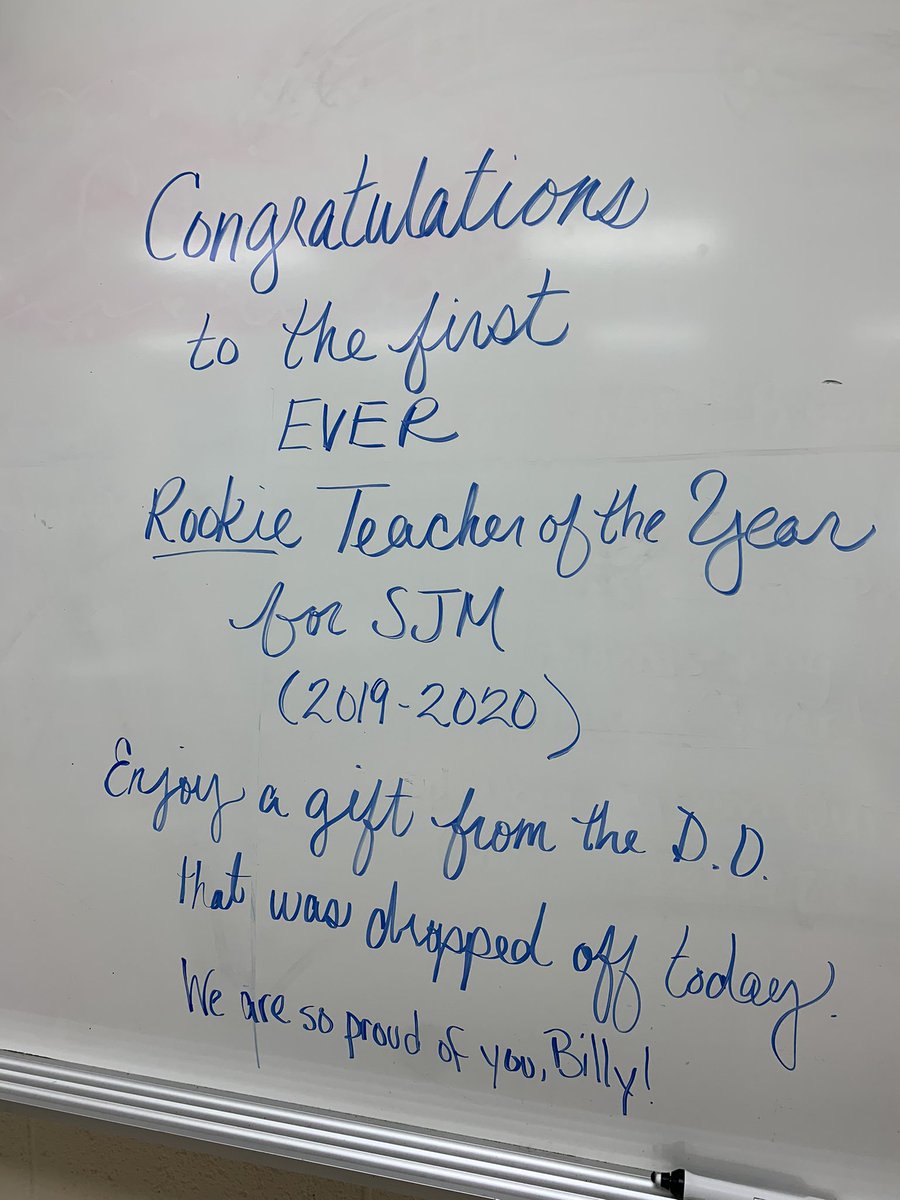 Congratulations
to the first
EVER
Rookie Teacher of the Year
for SJM
(2019-2020)
Enjoy a gift from the D.O.
that was dropped off today.
We are so proud of you, Billy!